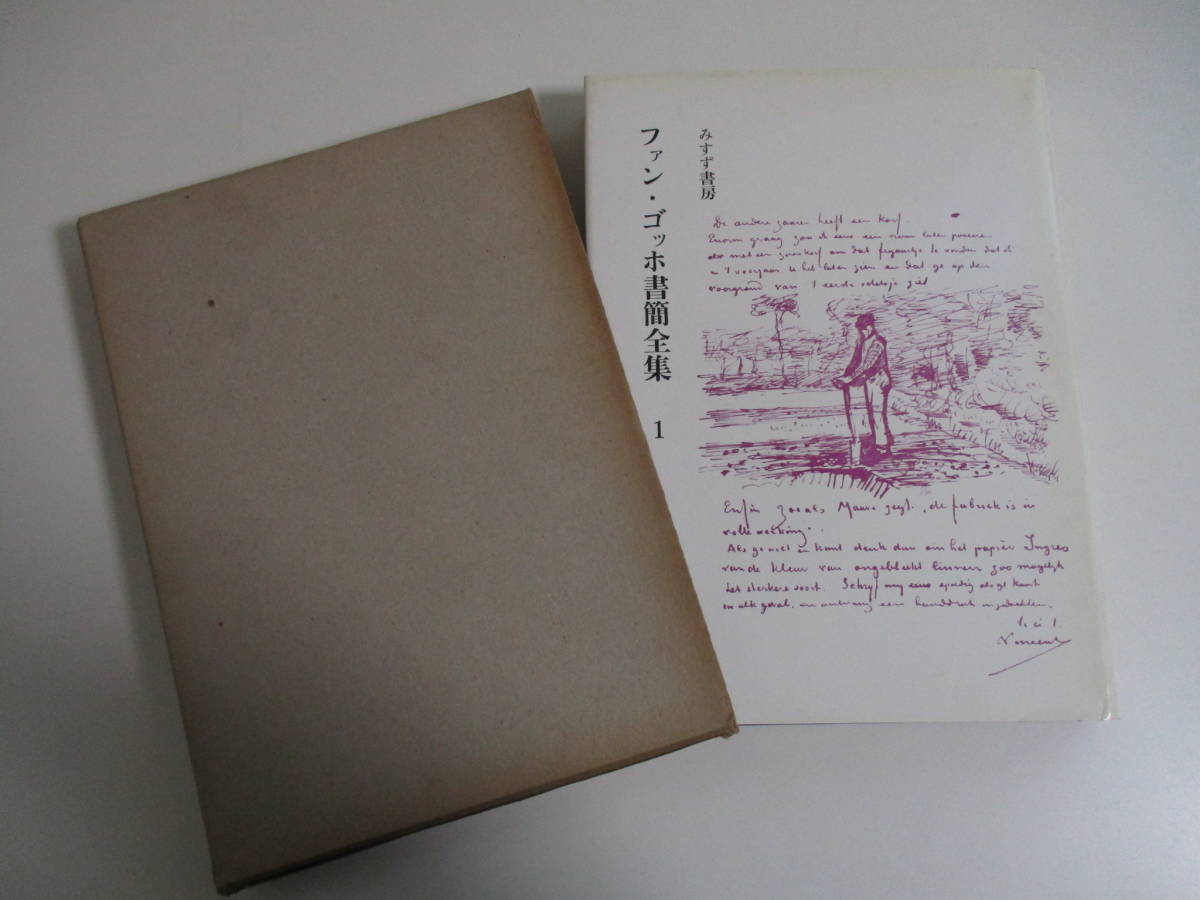 みすず書房
ファン・ゴッホ書簡全集 1
De andere zaaier heeft een korf.
Enorm graag zou ik eens een vrouw laten poseeren
met een zaaikorf om dat figuurtje te vinden dat ik
u 't voorjaar u heb laten zien en dat ge op den
voorgrond van 't eerste schetsje ziet
Enfin zooals Mauve zegt, de fabriek is in
volle werking.
Als ge wilt en kunt denk dan om het papier Ingres
van de kleur van ongebleekt linnen zoo mogelijk
het sterkere soort. Schrijf my eens spoedig als ge kunt
in elk geval, en ontvang een handdruk in gedachten.
t. à t.
Vincent